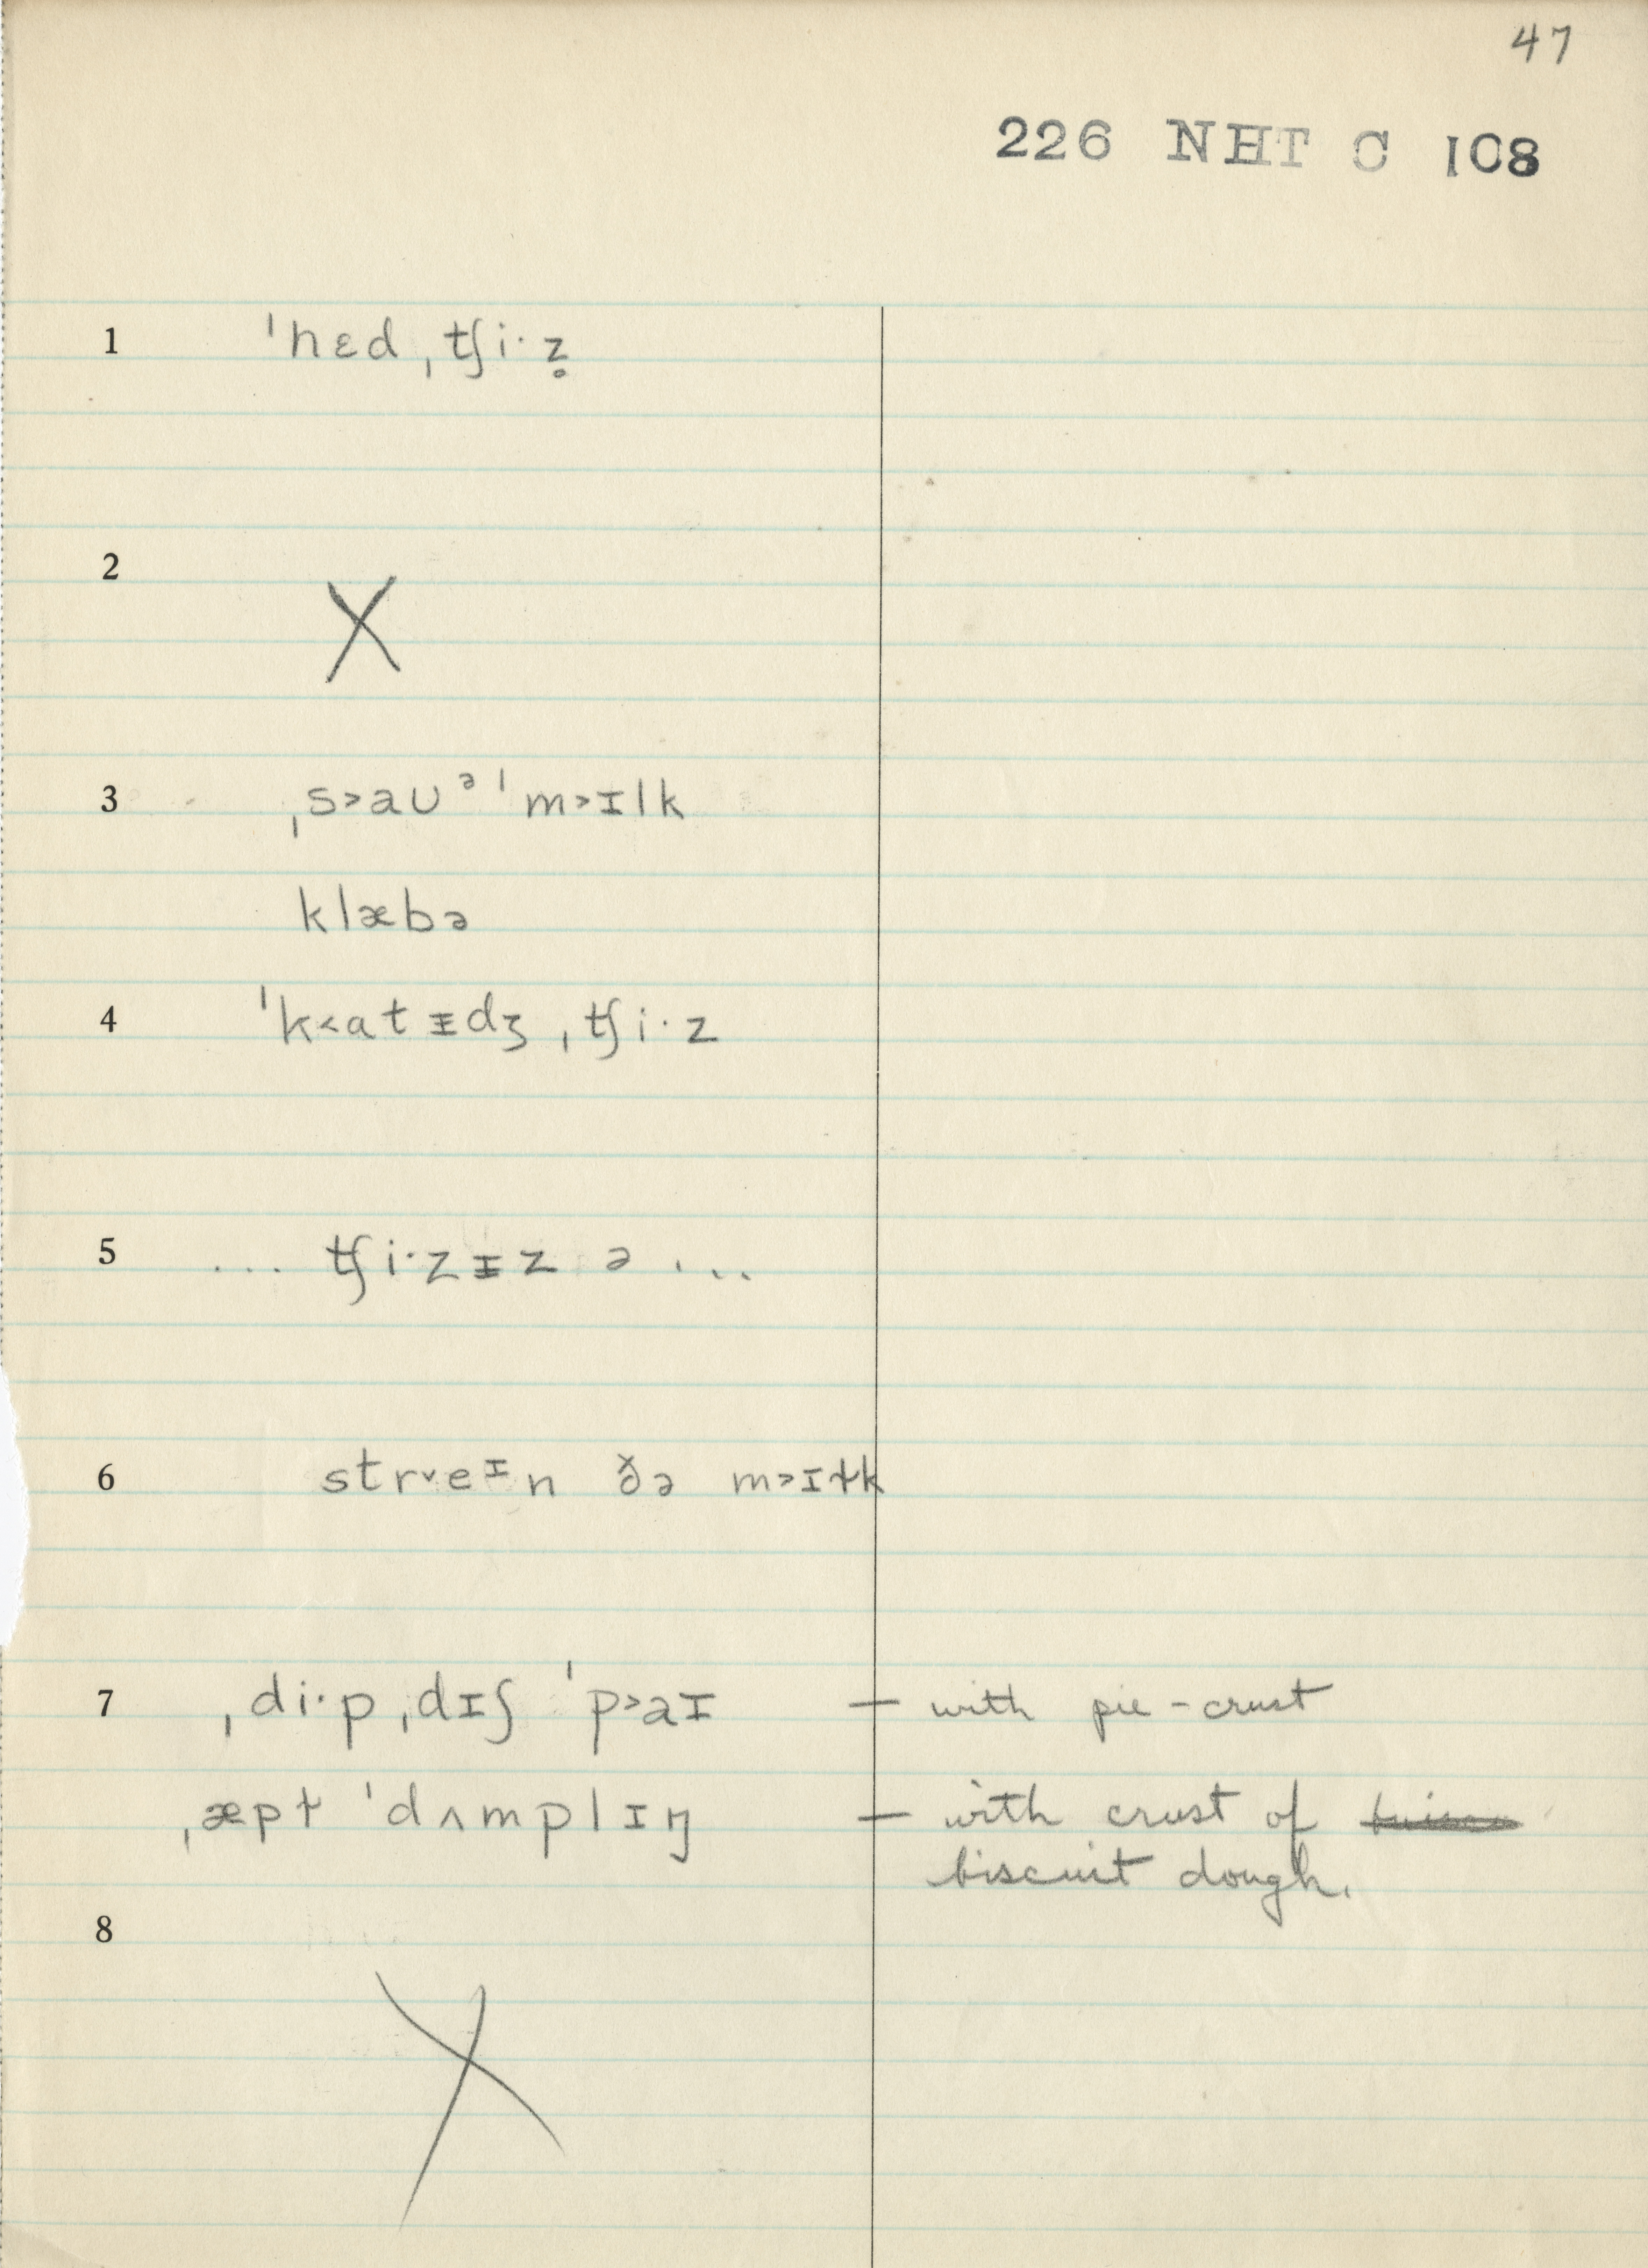 47
226 NHT C 108
1 ˈhɛd ˌtʃi·z̥
2 X
3 ˌs˃aʊᵊ ˈm˃ɪlk
klæbə
4 ˈk˂atɪ̵dʒ ˌtʃi·z
5 ... tʃi·zɪ̵z ə ...
6 str˅eᶦn ðə m˃ɪɫk
7 ˌdi·p ˌdɪʃ ˈp˃aɪ — with pie-crust
ˌæpɫ ˈdʌmplɪŋ — with crust of
biscuit dough.
8 X